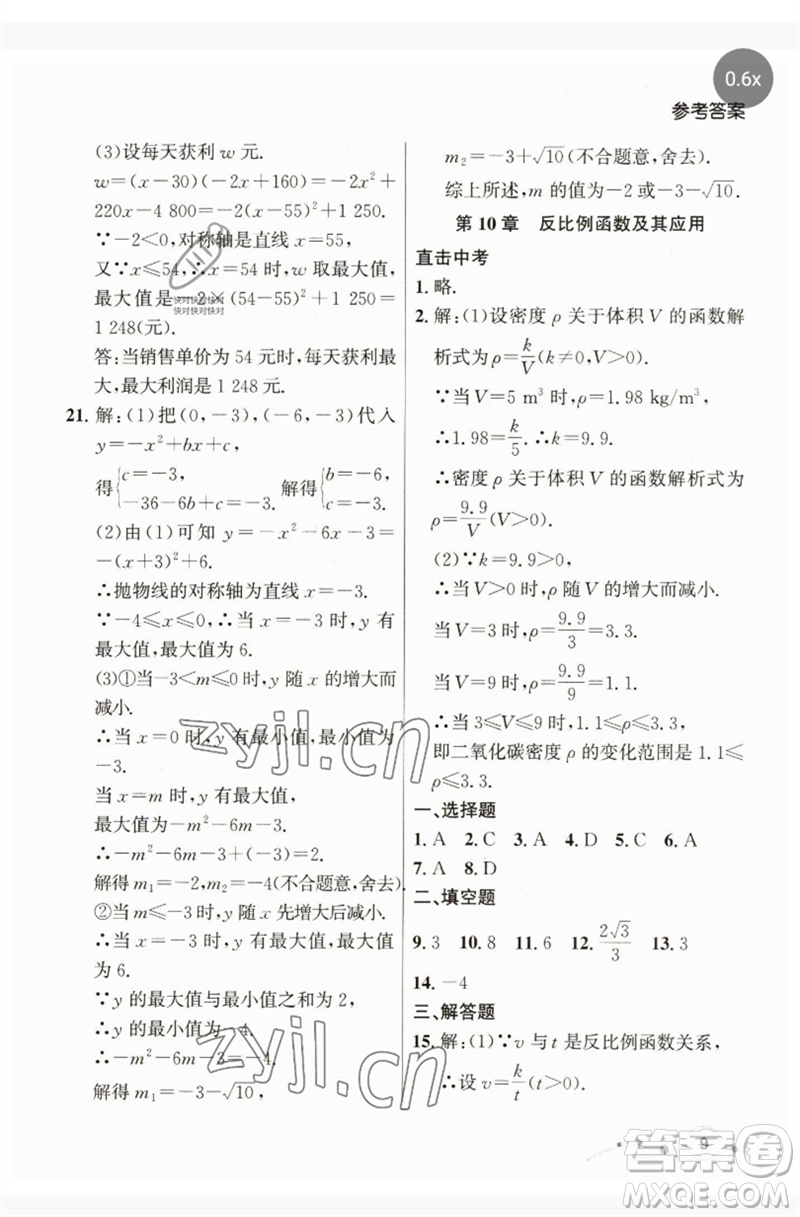 0.6x
参考答案
(3)设每天获利 w 元.
w=(x-30)(-2x+160)=-2x²+
220x-4 800=-2(x-55)²+1 250.
∵-2<0,对称轴是直线 x=55,
又∵x≤54,∴当 x=54 时,w 取最大值,
最大值是-2×(54-55)²+1 250=
快对快对快对
快对快对快对
1 248(元).
答:当销售单价为 54 元时,每天获利最
大,最大利润是 1 248 元.
21. 解:(1)把(0,-3),(-6,-3)代入
y=-x²+bx+c,
得{c=-3, -36-6b+c=-3, 解得{b=-6, c=-3.
(2)由(1)可知 y=-x²-6x-3=
-(x+3)²+6.
∴抛物线的对称轴为直线 x=-3.
∵-4≤x≤0,∴当 x=-3 时,y 有最
大值,最大值为 6.
(3)①当-3<m≤0 时,y 随 x 的增大而
减小.
∴当 x=0 时,y 有最小值,最小值为
-3.
当 x=m 时,y 有最大值,
最大值为-m²-6m-3.
∴-m²-6m-3+(-3)=2.
解得 m₁=-2,m₂=-4(不合题意,舍去).
②当 m≤-3 时,y 随 x 先增大后减小.
∴当 x=-3 时,y 有最大值,最大值
为 6.
∵y 的最大值与最小值之和为 2,
∴y 的最小值为-4.
∴-m²-6m-3=-4.
解得 m₁=-3-√10,
m₂=-3+√10(不合题意,舍去).
综上所述,m 的值为-2 或-3-√10.
第 10 章 反比例函数及其应用
直击中考
1. 略.
2. 解:(1)设密度 ρ 关于体积 V 的函数解
析式为 ρ=k/V(k≠0,V>0).
∵当 V=5 m³ 时,ρ=1.98 kg/m³,
∴1.98=k/5.∴k=9.9.
∴密度 ρ 关于体积 V 的函数解析式为
ρ=9.9/V(V>0).
(2)∵k=9.9>0,
∴当 V>0 时,ρ 随 V 的增大而减小.
当 V=3 时,ρ=9.9/3=3.3.
当 V=9 时,ρ=9.9/9=1.1.
∴当 3≤V≤9 时,1.1≤ρ≤3.3,
即二氧化碳密度 ρ 的变化范围是 1.1≤
ρ≤3.3.
一、选择题
1. A 2. C 3. A 4. D 5. C 6. A
7. A 8. D
二、填空题
9. 3 10. 8 11. 6 12. 2√3/3 13. 3
14. -4
三、解答题
15. 解:(1)∵v 与 t 是反比例函数关系,
∴设 v=k/t(t>0).
zyjl.cn
zyjl.cn
9
答案圈
MXQE.COM